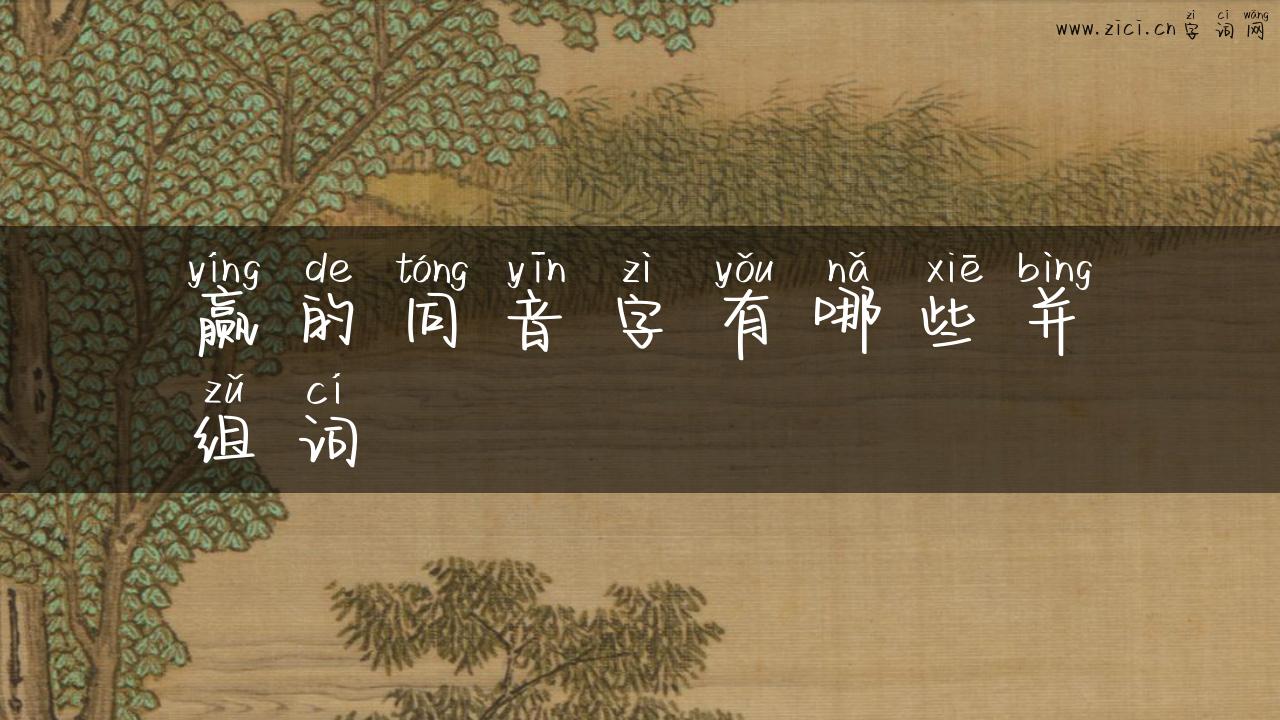 zì cí wǎng
www.zici.cn 字词网
yíng de tóng yīn zì yǒu nǎ xiē bìng
赢的同音字有哪些并
zǔ cí
组词